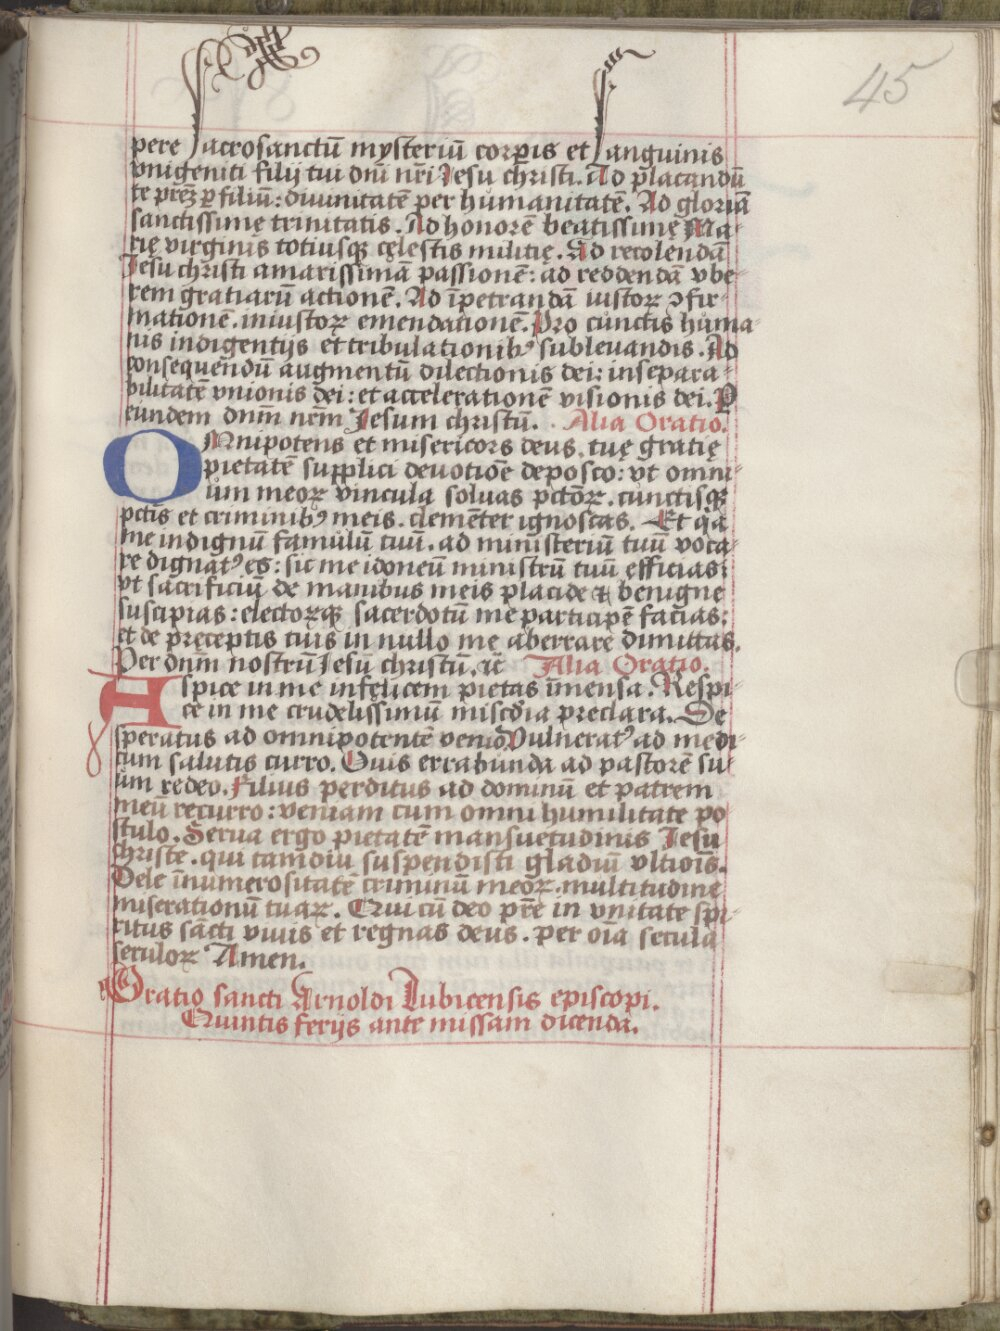 45
pere sacrosanctū mysteriū corꝑis et sanguinis
vnigeniti filij tui dnī nr̄i Jesu christi. Ad placandū
te prēꝫ ꝑ filiū: diuinitatē per humanitatē. Ad gloriā
sanctissimę trinitatis. Ad honorē beatissimę Ma⸗
rię virginis totiusqꝫ cęlestis militię. Ad recolendā
Jesu christi amarissimā passionē: ad reddendā vbe⸗
rem gratiarū actionē. Ad īpetrandā iustoꝝ ꝯfir⸗
mationē. iniustoꝝ emendationē. Pro cunctis huma⸗
nis indigentijs et tribulationibꝰ subleuandis. Ad
consequendū augmentū dilectionis dei: insepara⸗
bilitatē vnionis dei: et accelerationē visionis dei. P
eundem dnm̄ nrm̄ Jesum christū. Alia Oratio.
OMnipotens et misericors deus. tuę gratię
pietatē supplici deuotiōe deposco: vt omni⸗
um meoꝝ vincula soluas pctōꝝ. cunctisqꝫ
pctīs et criminibꝰ meis. clemēter ignoscas. Et qā
me indignū famulū tuū. ad ministeriū tuū voca⸗
re dignatꝰ es: sic me idoneū ministrū tuū efficias:
vt sacrificiū de manibus meis placide & benigne
suscipias: electoꝝqꝫ sacerdotū me participē facias:
et de pręceptis tuis in nullo me aberrare dimittas.
Per dnm̄ nostrū Jesū christū. ꝛc̄ Alia Oratio.
Aspice in me infęlicem pietas īmensa. Respi⸗
ce in me crudelissimū miscd̄ia preclara. De
speratus ad omnipotentē venio. Vulneratꝰ ad medi⸗
cum salutis curro. Ouis errabunda ad pastorē su⸗
um redeo. Filius perditus ad dominū et patrem
meū recurro: veniam cum omni humilitate po
stulo. Serua ergo pietatē mansuetudinis Jesu
christe. qui tamdiu suspendisti gladiū vltiōis.
Dele īnumerositatē criminū meoꝝ. multitudine
miserationū tuaꝝ. Qui cū deo prē in vnitate spi⸗
ritus sācti viuis et regnas deus. per oīa secula
seculoꝝ Amen.
Oratio sancti Arnoldi Lubicensis episcopi.
Quintis ferijs ante missam dicenda.